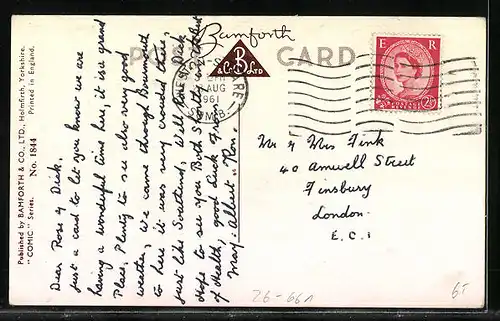 Published by BAMFORTH & CO., LTD., Holmfirth, Yorkshire.
"COMIC" Series. No. 1844 Printed in England.
Bamforth
B
& CO LTD
P CARD
AUG
1961
E R
2½D
Dear Rose & Dick.
just a card to let you know we are
having a wonderful time here, it is a grand
Place, Plenty to see also very good
weather, We came through Bournemouth
to here it was very crowded there,
just like Southend, Well Rose & Dick
Hope to see you Both Shortly & in the Best
of Health, good Luck From
May. Albert Ron.
Mr & Mrs Fink
40 Amwell Street
Finsbury
London.
E.C.1
26-661
6/-